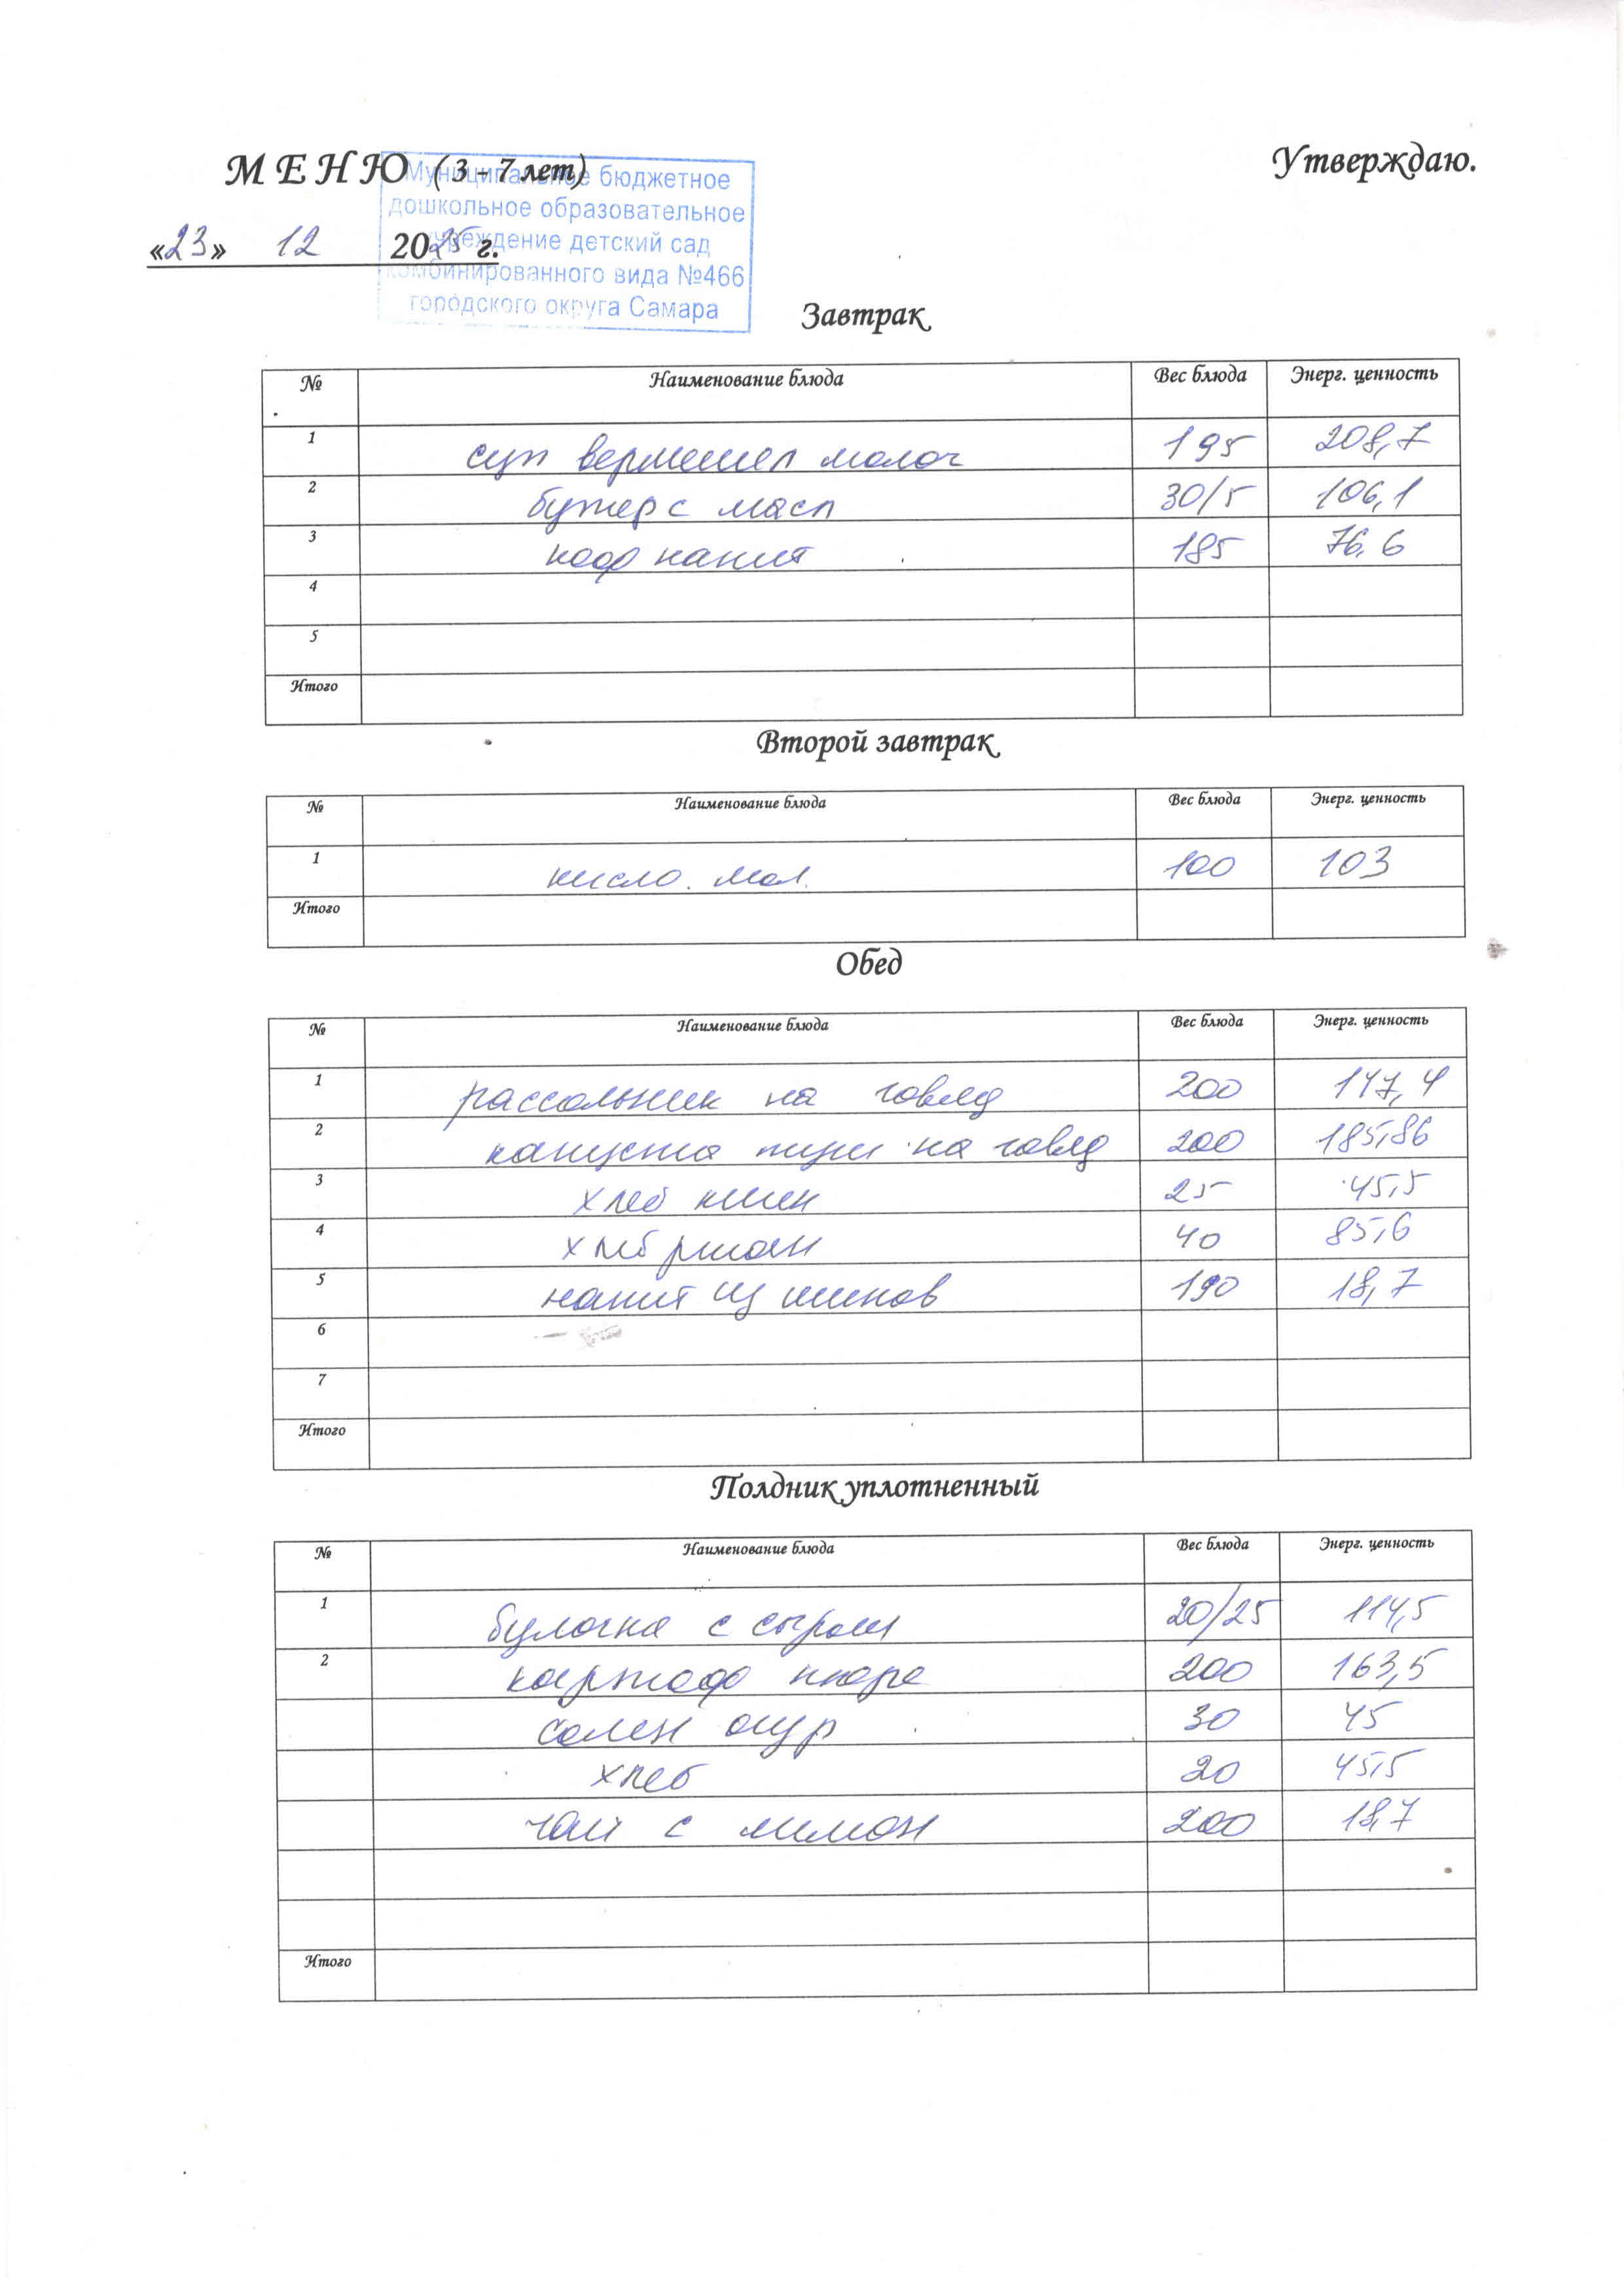 М Е Н Ю ( 3 - 7 лет)
Утверждаю.
Муниципальное бюджетное
дошкольное образовательное
учреждение детский сад
комбинированного вида №466
городского округа Самара
«23» 12 2025 г.
Завтрак
№ Наименование блюда Вес блюда Энерг. ценность
1 суп вермишел молоч 195 208,7
2 бутер с масл 30/5 106,1
3 коф напит 185 76,6
4
5
Итого
Второй завтрак
№ Наименование блюда Вес блюда Энерг. ценность
1 кисло. мол. 100 103
Итого
Обед
№ Наименование блюда Вес блюда Энерг. ценность
1 рассольник на говяд 200 147,4
2 капуста туш на говяд 200 185,86
3 хлеб пшен 25 45,5
4 хлеб ржан 40 85,6
5 напит из шипов 190 18,7
6
7
Итого
Полдник уплотненный
№ Наименование блюда Вес блюда Энерг. ценность
1 булочка с сыром 20/25 114,5
2 картоф пюре 200 163,5
солен огур 30 45
хлеб 20 45,5
чай с лимон 200 18,7
Итого